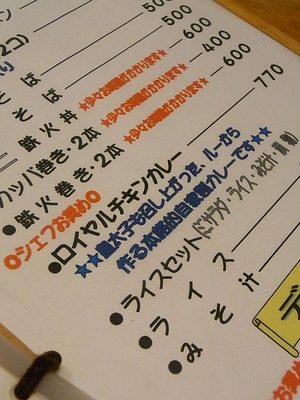 500
2コ) 500
そば 600
そば 400
ミニ鉄火丼 ★少々お時間がかかります★ 600
カッパ巻き・2本 ★少々お時間がかかります★
●鉄火巻き・2本 ★少々お時間がかかります★
○シェフお奨め○
●ロイヤルチキンカレー 770
★★皇太子も召し上がった、ルーから
作る本格的自家製カレーです★★
●ライスセット(ミニサラダ・ライス・みそ汁・
●ライス
●みそ汁
デ
お